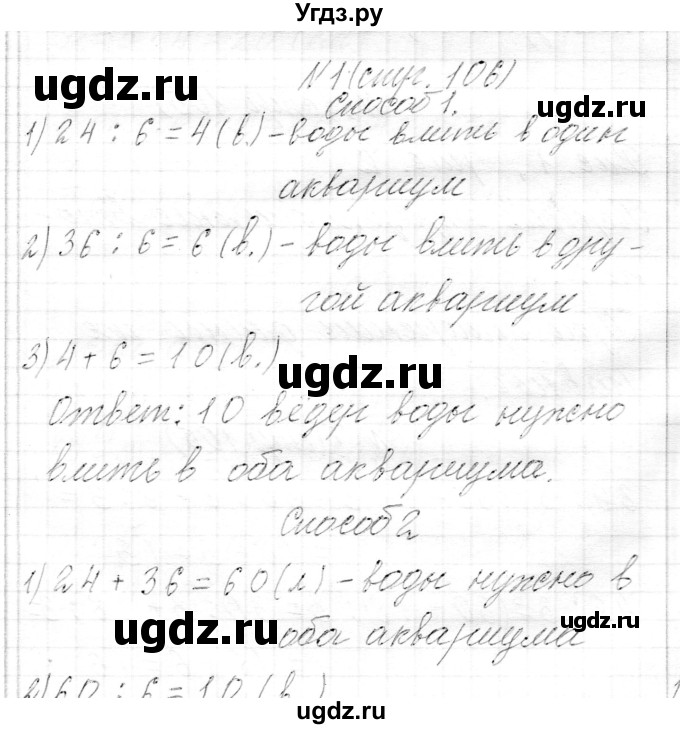 Угдз.ру
№1 (стр. 106)
ugdz.ru
Способ 1.
1) 24 : 6 = 4 (в.) - воды влить в один
аквариум
2) 36 : 6 = 6 (в.) - воды влить в дру-
гой аквариум
3) 4 + 6 = 10 (в.)
ugdz.ru
Ответ: 10 вёдер воды нужно
влить в оба аквариума.
Способ 2
1) 24 + 36 = 60 (л) - воды нужно в
ugdz.ru
оба аквариума
2) 60 : 6 = 10 (в.)
ugdz.ru